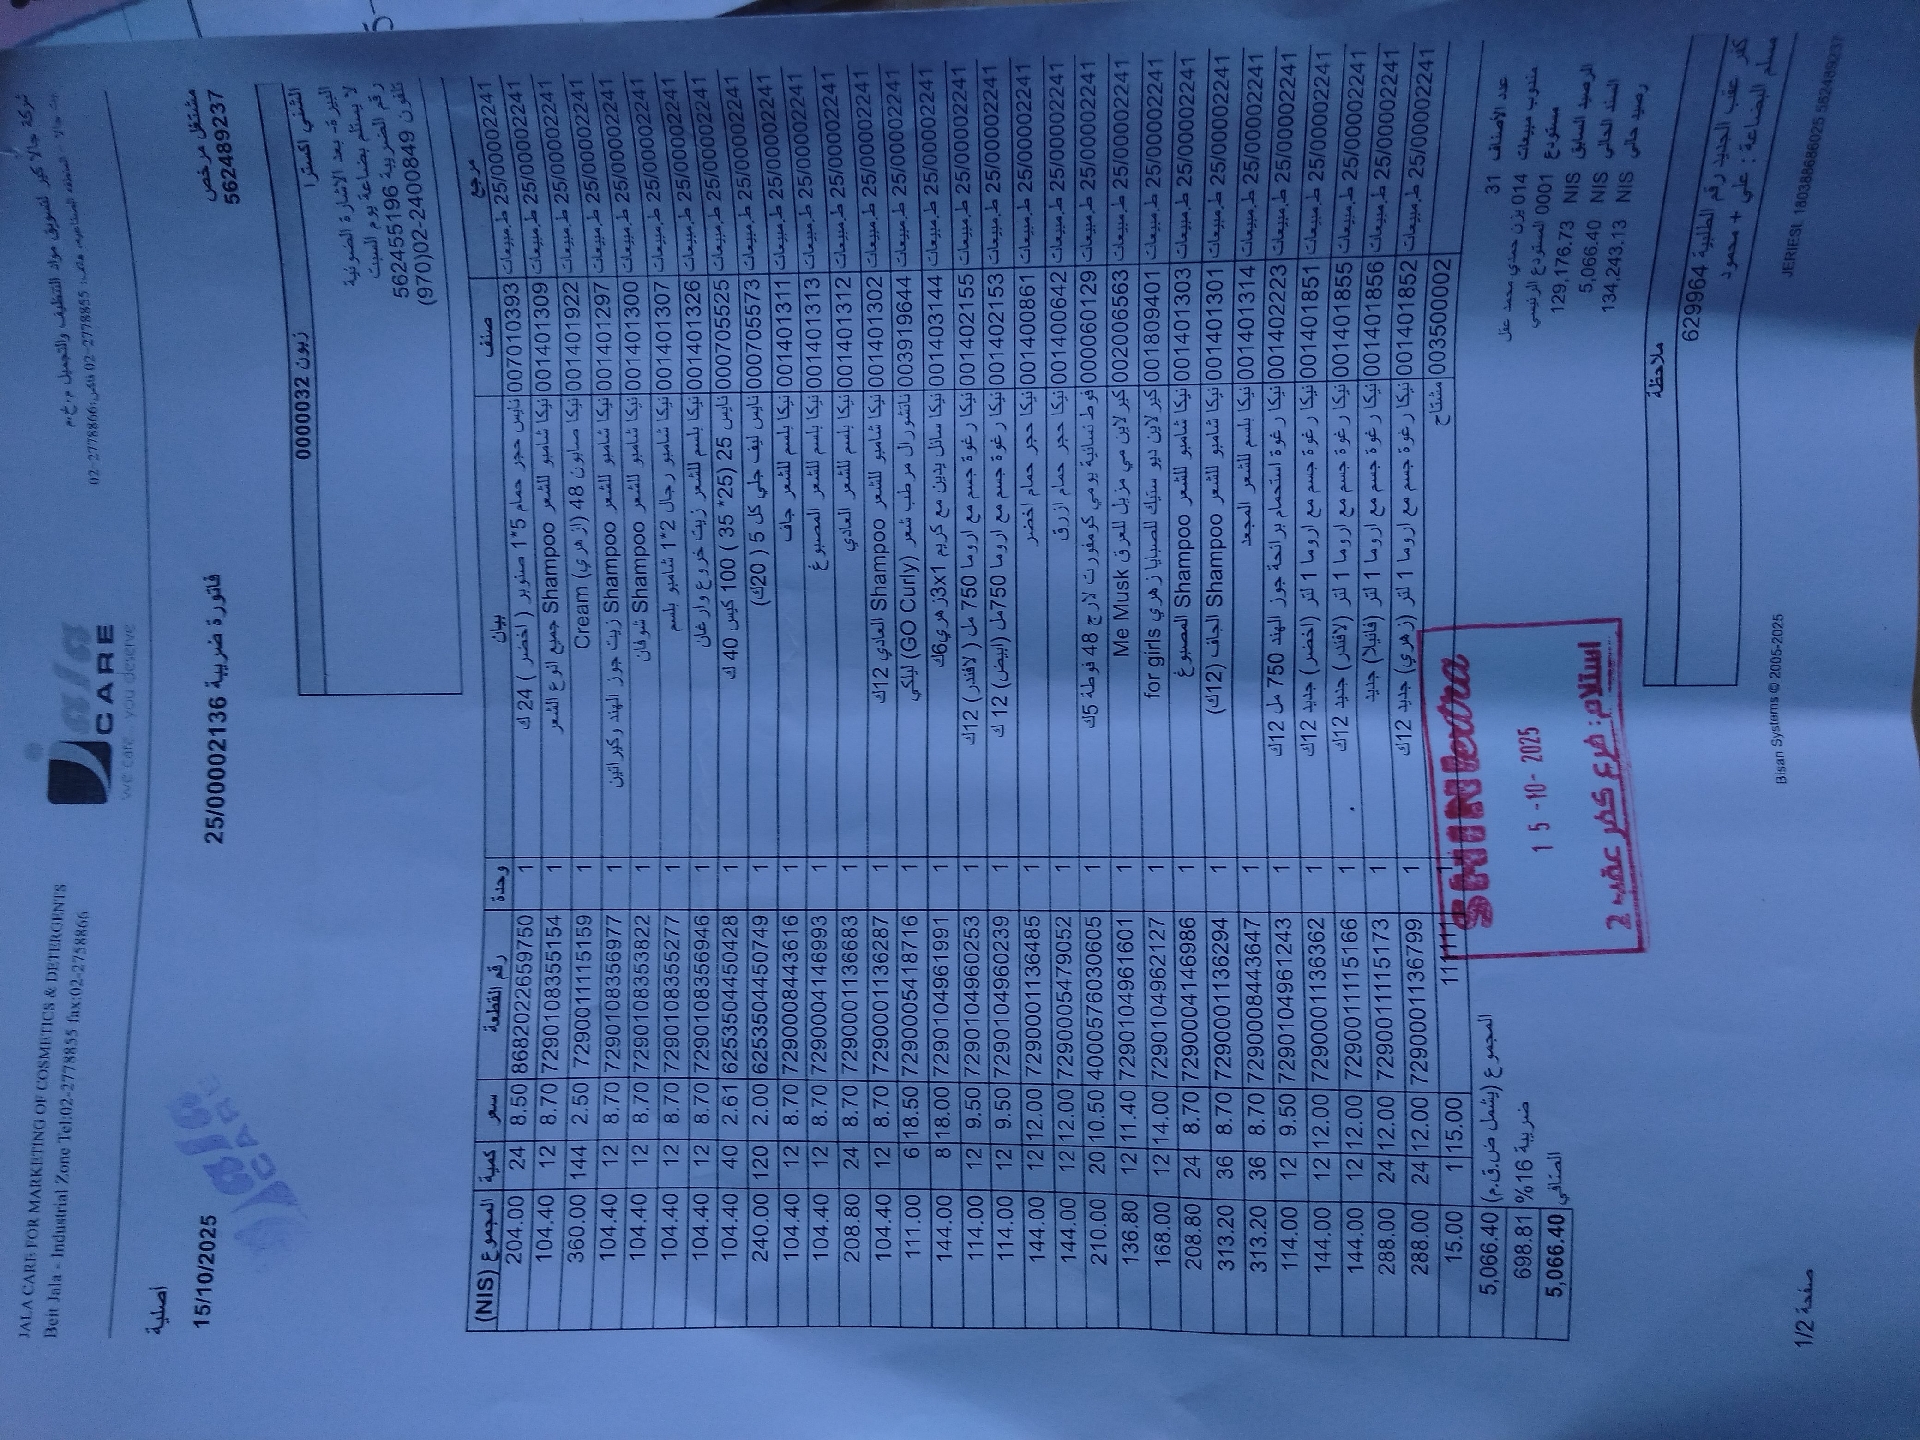 JALA CARE FOR MARKETING OF COSMETICS & DETERGENTS
Beit Jala - Industrial Zone Tel:02-2778855 fax:02-2758866
jala CARE
we care you deserve
شركة جالا كير لتسويق مواد التنظيف والتجميل م.خ.م
02-2778855 فاكس:02-2778866
اصلية
15/10/2025
فاتورة ضريبية 25/00002136
مشتغل مرخص
562489237
زبون 0000032 الشني اكسترا
البيرة- بعد الاشارة الضوئية
لا يستلم بضاعة يوم السبت
رقم الضريبية 562455196
تلفون 02-2400849(970)
مرجع صنف بيان وحدة رقم القطعة سعر كمية المجموع (NIS)
ط.مبيعات 25/00002241 00701 0393 نايس حجر حمام 5*1 صنوبر (اخضر) 24 ك 1 8682022659750 8.50 24 204.00
ط.مبيعات 25/00002241 001401309 نيكا شامبو للشعر Shampoo جميع انوع الشعر 1 7290108355154 8.70 12 104.40
ط.مبيعات 25/00002241 001401922 نيكا صابون 48 (ازهري) Cream 1 7290011115159 2.50 144 360.00
ط.مبيعات 25/00002241 001401297 نيكا شامبو للشعر Shampoo زيت جوز الهند وكيراتين 1 7290108356977 8.70 12 104.40
ط.مبيعات 25/00002241 001401300 نيكا شامبو للشعر Shampoo شوفان 1 7290108353822 8.70 12 104.40
ط.مبيعات 25/00002241 001401307 نيكا شامبو رجال 2*1 شامبو بلسم 1 7290108355277 8.70 12 104.40
ط.مبيعات 25/00002241 001401326 نيكا بلسم للشعر زيت خروع وارغان 1 7290108356946 8.70 12 104.40
ط.مبيعات 25/00002241 000705525 نايس 25 (25* 35 ) 100 كيس 40 ك 1 6253504450428 2.61 40 104.40
ط.مبيعات 25/00002241 000705573 نايس ليف جلي كل 5 (20ك) 1 6253504450749 2.00 120 240.00
ط.مبيعات 25/00002241 001401311 نيكا بلسم للشعر جاف 1 7290008443616 8.70 12 104.40
ط.مبيعات 25/00002241 001401313 نيكا بلسم للشعر المصبوغ 1 7290004146993 8.70 12 104.40
ط.مبيعات 25/00002241 001401312 نيكا بلسم للشعر العادي 1 7290001136683 8.70 24 208.80
ط.مبيعات 25/00002241 001401302 نيكا شامبو للشعر Shampoo العادي 12ك 1 7290001136287 8.70 12 104.40
ط.مبيعات 25/00002241 003919644 ناتشورال مرطب شعر (GO Curly) ليلكي 1 7290005418716 18.50 6 111.00
ط.مبيعات 25/00002241 001403144 نيكا سائل يدين مع كريم 3x1زهري6ك 1 7290104961991 18.00 8 144.00
ط.مبيعات 25/00002241 001402155 نيكا رغوة جسم مع اروما 750 مل (لافندر) 12ك 1 7290104960253 9.50 12 114.00
ط.مبيعات 25/00002241 001402153 نيكا رغوة جسم مع اروما 750مل (ابيض) 12 ك 1 7290104960239 9.50 12 114.00
ط.مبيعات 25/00002241 001400861 نيكا حجر حمام اخضر 1 7290001136485 12.00 12 144.00
ط.مبيعات 25/00002241 001400642 نيكا حجر حمام ازرق 1 7290005479052 12.00 12 144.00
ط.مبيعات 25/00002241 000060129 فوط نسائية يومي كومفورت لارج 48 فوطة 5ك 1 4000576030605 10.50 20 210.00
ط.مبيعات 25/00002241 002006563 كير لاين مي مزيل للعرق Me Musk 1 7290104961601 11.40 12 136.80
ط.مبيعات 25/00002241 001809401 كير لاين ديو ستيك للصبايا زهري for girls 1 7290104962127 14.00 12 168.00
ط.مبيعات 25/00002241 001401303 نيكا شامبو للشعر Shampoo المصبوغ 1 7290004146986 8.70 24 208.80
ط.مبيعات 25/00002241 001401301 نيكا شامبو للشعر Shampoo الجاف (12ك) 1 7290001136294 8.70 36 313.20
ط.مبيعات 25/00002241 001401314 نيكا بلسم للشعر المجعد 1 7290008443647 8.70 36 313.20
ط.مبيعات 25/00002241 001402223 نيكا رغوة استحمام برائحة جوز الهند 750 مل 12ك 1 7290104961243 9.50 12 114.00
ط.مبيعات 25/00002241 001401851 نيكا رغوة جسم مع اروما 1 لتر (اخضر) جديد 12ك 1 7290001136362 12.00 12 144.00
ط.مبيعات 25/00002241 001401855 نيكا رغوة جسم مع اروما 1 لتر (لافندر) جديد 12ك 1 7290011115166 12.00 12 144.00
ط.مبيعات 25/00002241 001401856 نيكا رغوة جسم مع اروما 1 لتر (فانيلا) جديد 1 7290011115173 12.00 24 288.00
ط.مبيعات 25/00002241 001401852 نيكا رغوة جسم مع اروما 1 لتر (زهري) جديد 12ك 1 7290001136799 12.00 24 288.00
003500002 مشتاح 111111 1 15.00 1 15.00
المجموع (يشمل ض.ق.م) 5,066.40
ضريبة 16% 698.81
الصافي 5,066.40
عدد الأصناف 31
مندوب مبيعات 014 يزن حمدي محمد عقل
مستودع 0001 المستودع الرئيسي
الرصيد السابق NIS 129,176.73
السند الحالي NIS 5,066.40
رصيد حالي NIS 134,243.13
SHINI extra
15-10-2025
استلام: فرع كفر عقب 2
ملاحظة
كفر عقب الجديد رقم الطلبية 629964
مسلم البضاعة : علي + محمود
صفحة 1/2
Bisan Systems © 2005-2025
JERIESI, 180388686025 562489237